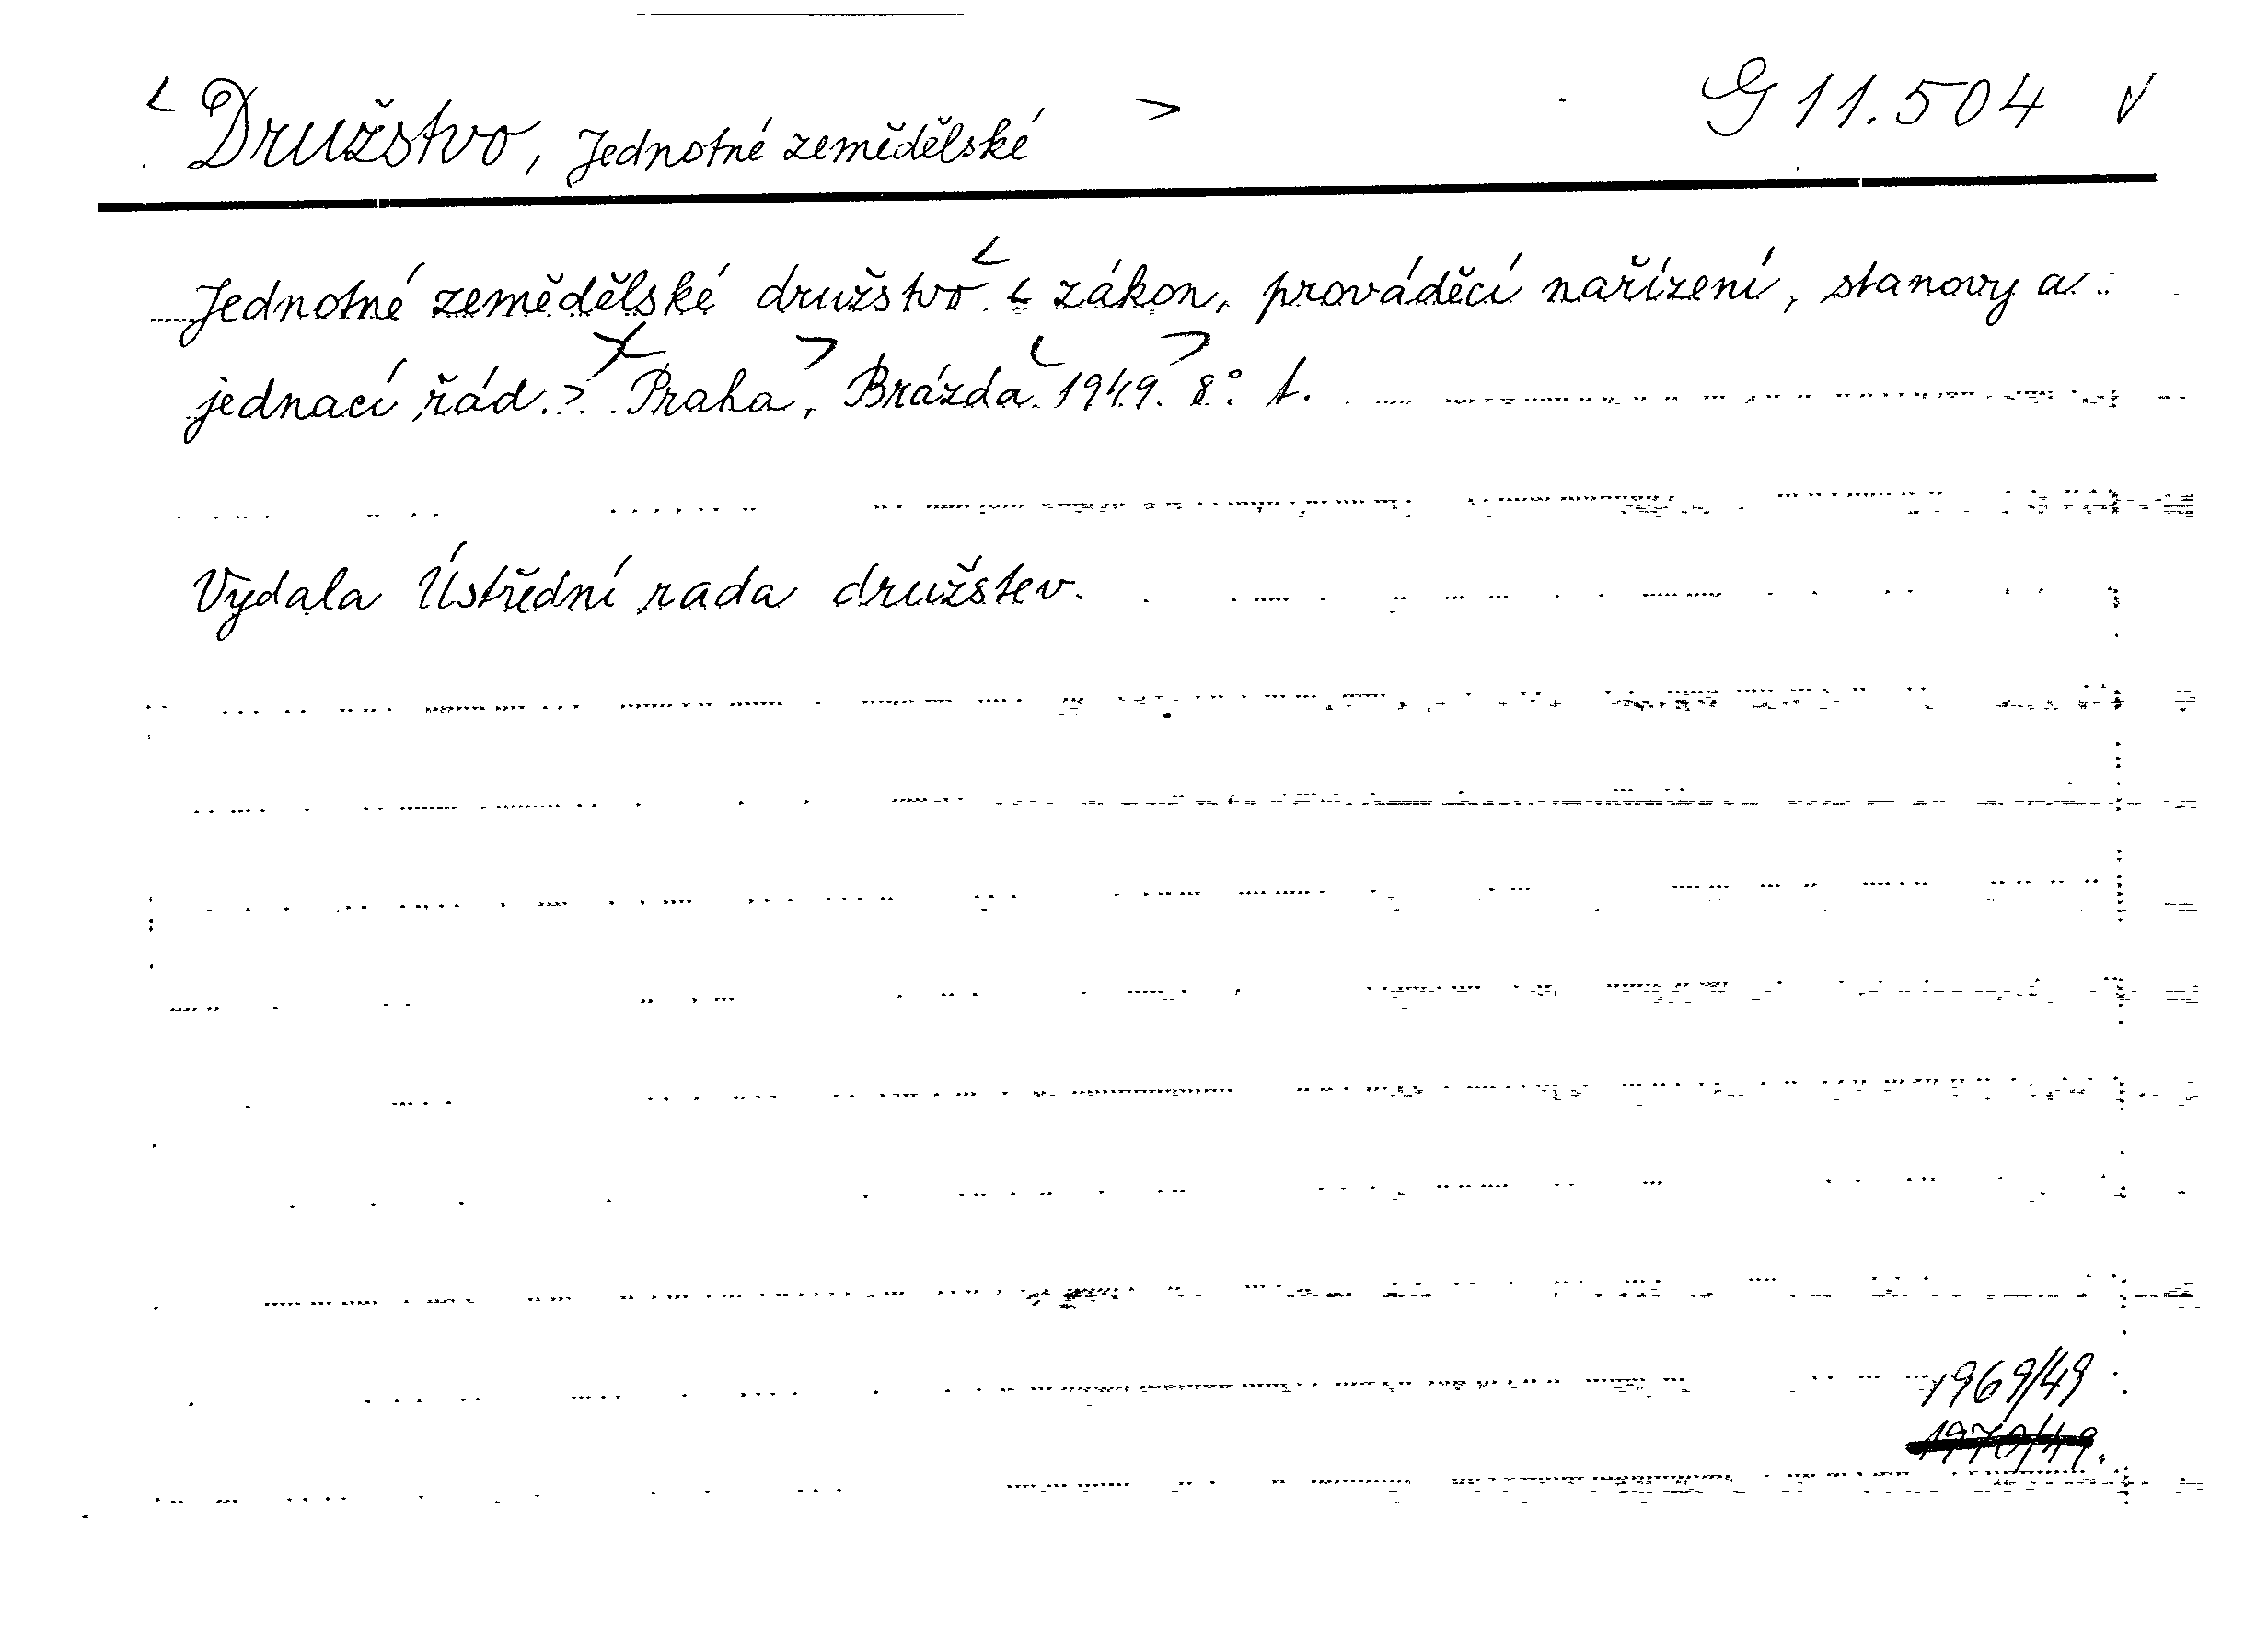 < Družstvo, Jednotné zemědělské > G 11.504 √
Jednotné zemědělské družstvo. < zákon, prováděcí nařízení, stanovy a
jednací řád.>. Praha, Brázda. 1949. 8° t.
Vydala Ústřední rada družstev.
1969/49
1970/49.